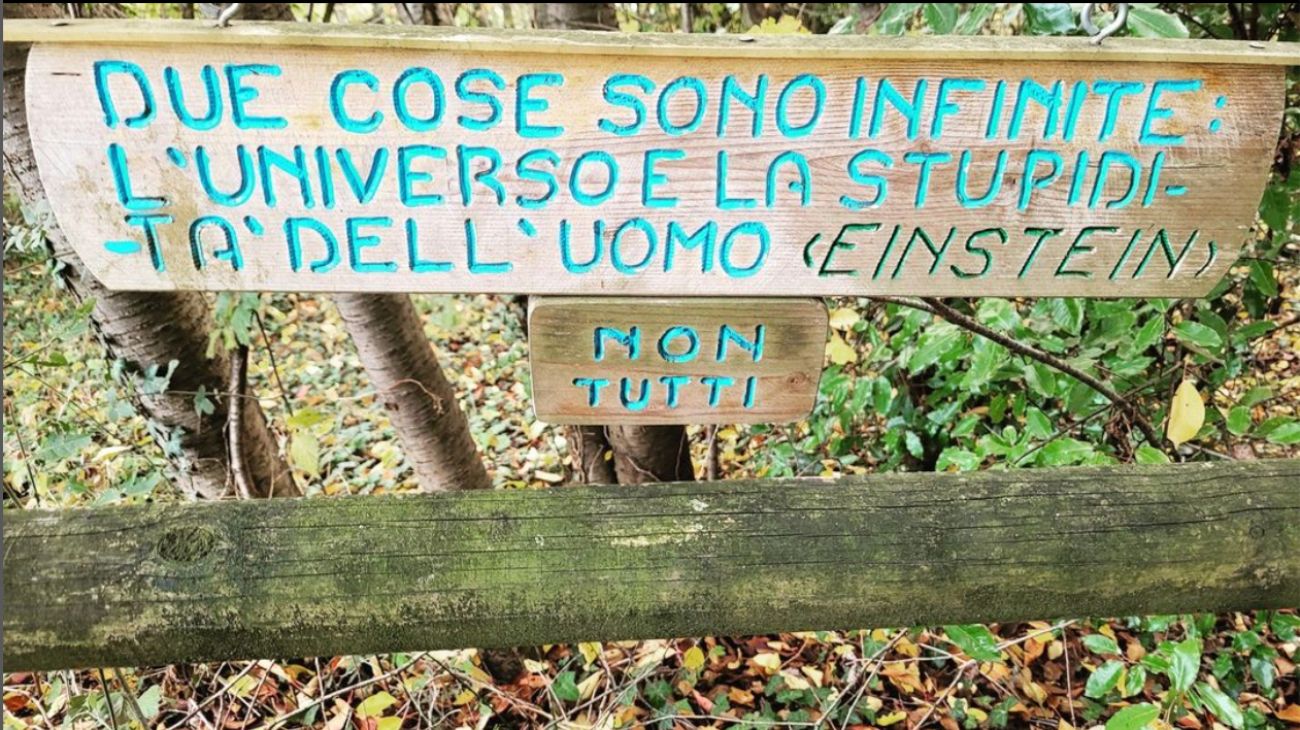 DUE COSE SONO INFINITE:
L'UNIVERSO E LA STUPIDI-
-TA' DELL'UOMO (EINSTEIN)
NON
TUTTI